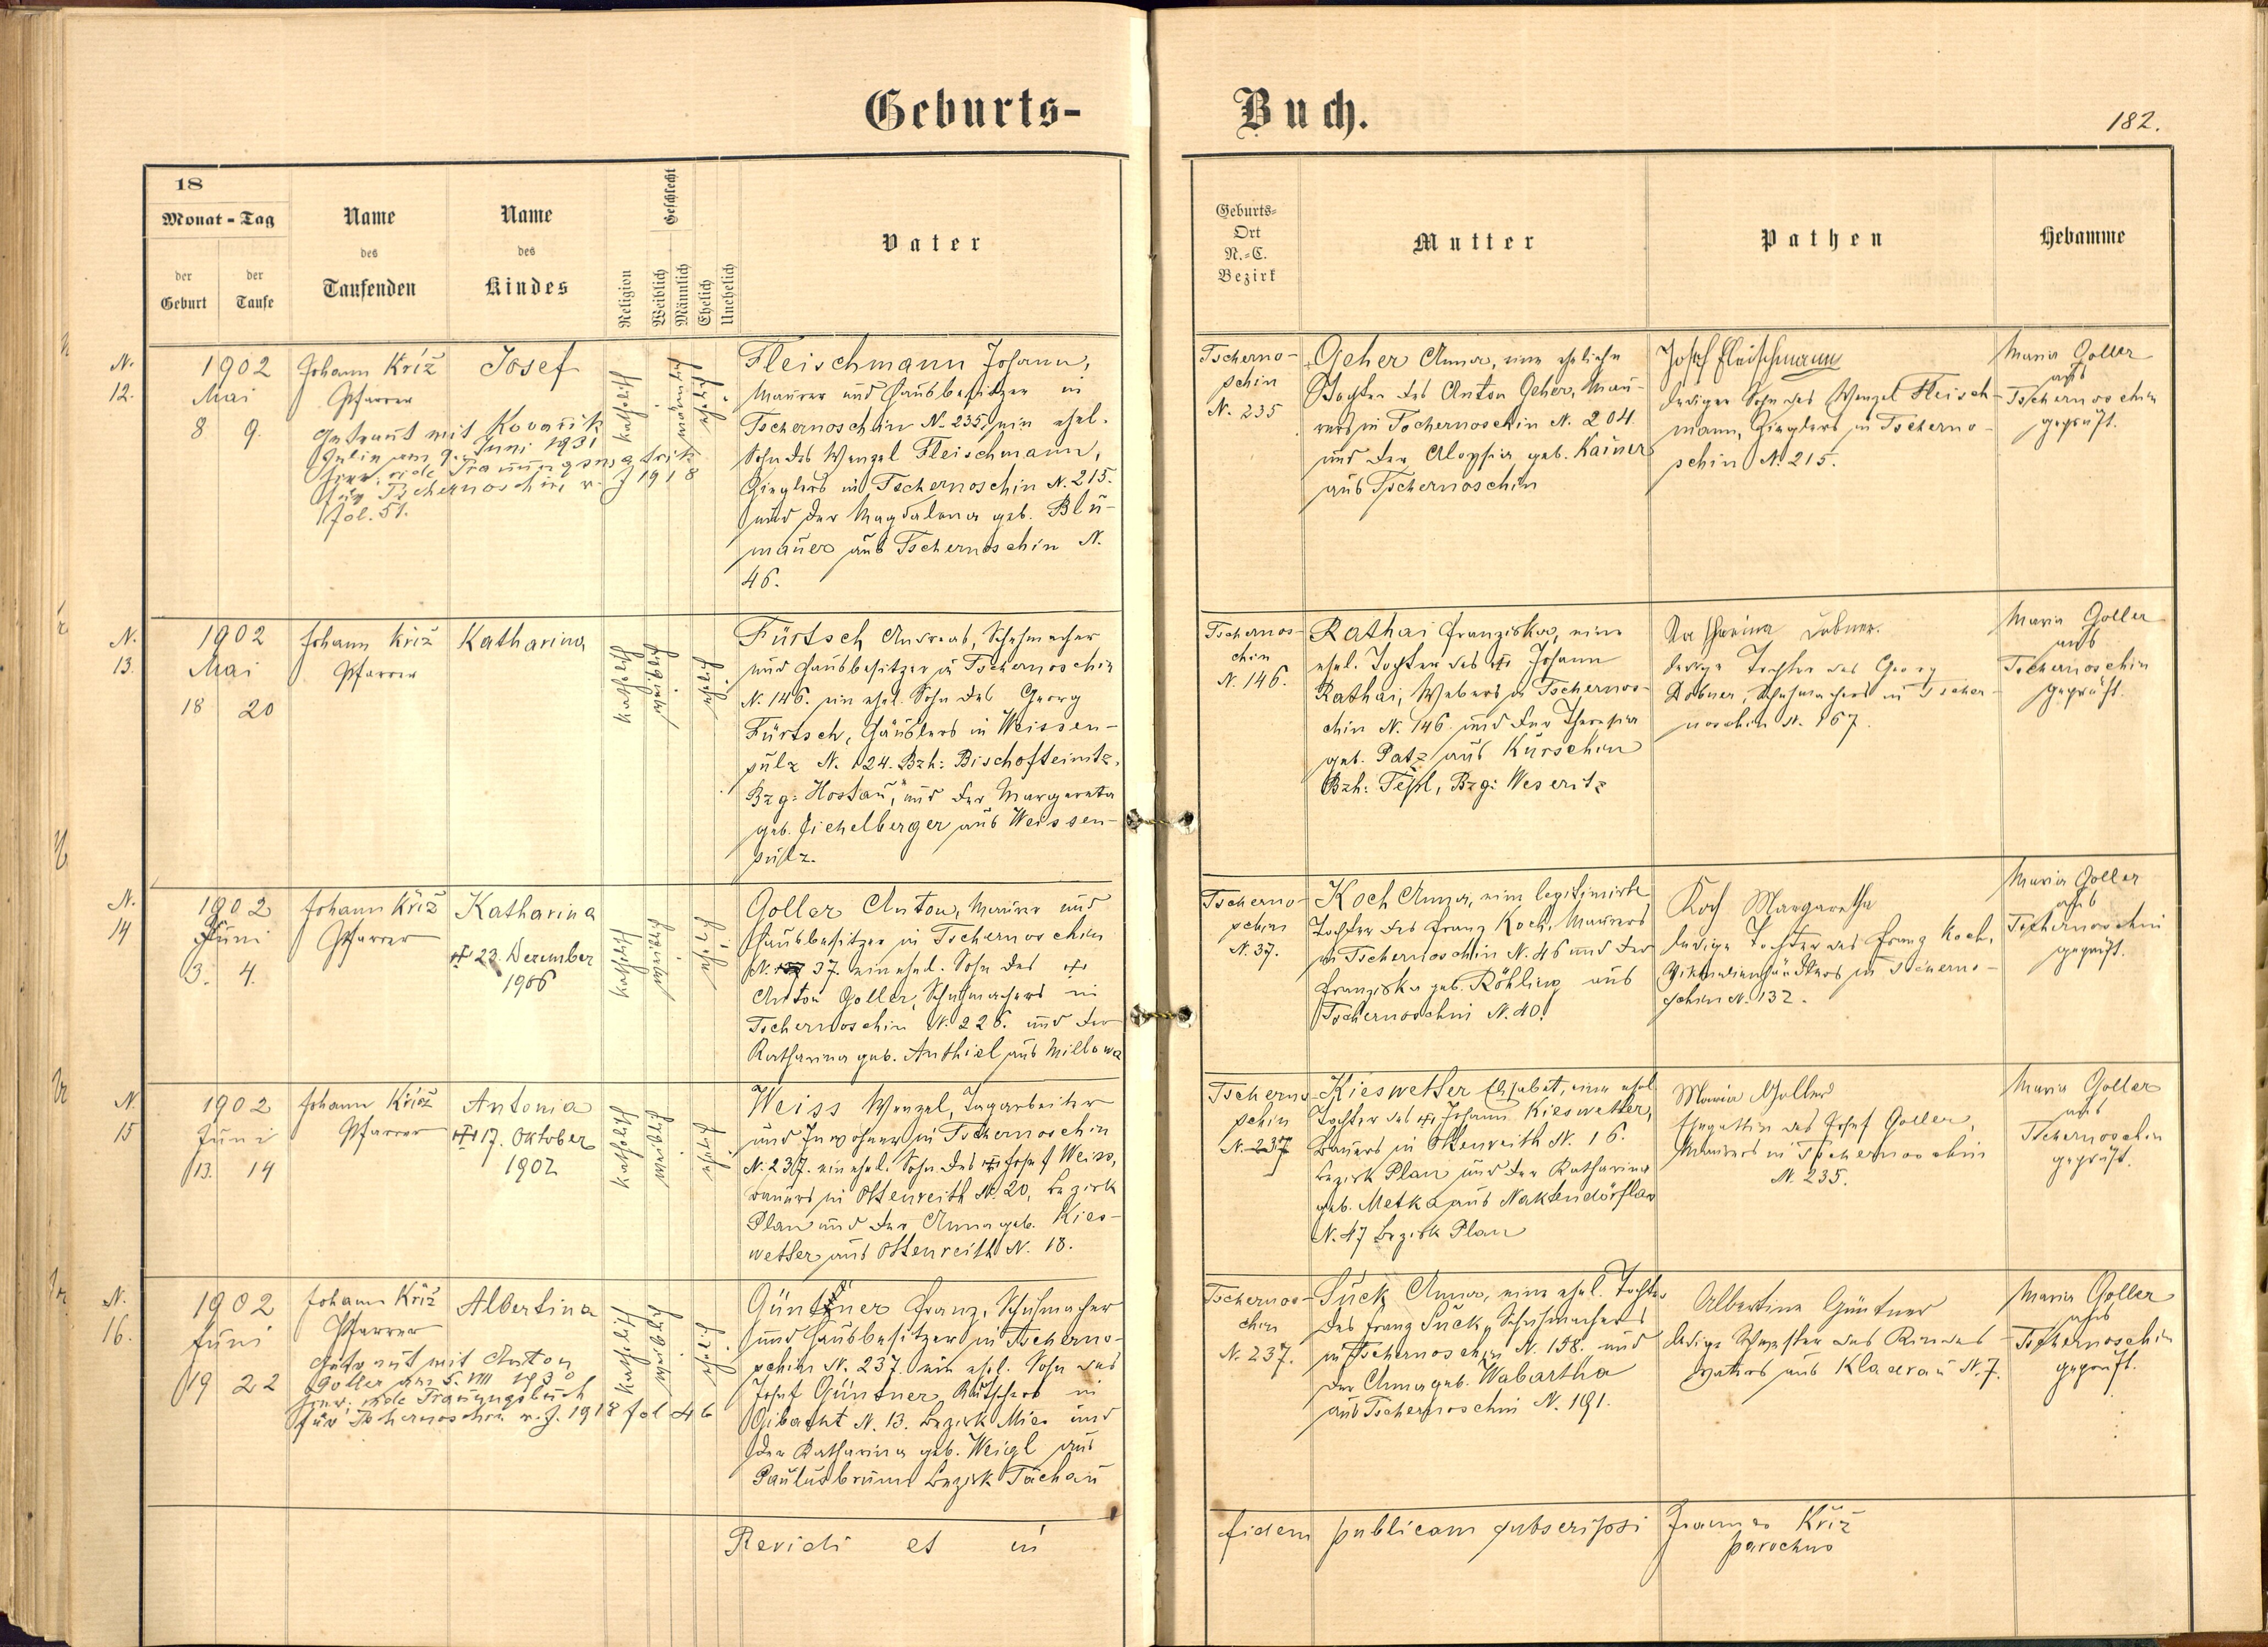 Geburts-
Buch.
182.
18
Monat - Tag
der Geburt
der Taufe
Name des Taufenden
Name des Kindes
Religion
Geschlecht
Weiblich
Männlich
Ehelich
Unehelich
Vater
Geburts-
Ort
N.-C.
Bezirk
Mutter
Pathen
Hebamme
N.
12.
1902
Mai
8 9.
Johann Kříž
Pfarrer
Josef
Getraut mit Kovařik
Julia am 9. Juni 1931
hier. vide Trauungsmatrik
für Tschernoschin v. J 1918
fol. 51.
katholisch
männlich
ehelich
Fleischmann Johann,
Maurer und Hausbesitzer in
Tschernoschin N. 235, ein ehel.
Sohn des Wenzel Fleischmann,
Zieglers in Tschernoschin N. 215.
und der Magdalena geb. Blu-
mauer aus Tschernoschin N.
46.
Tscherno-
schin
N. 235
Geher Anna, eine eheliche
Tochter des Anton Geher, Mau-
rers in Tschernoschin N. 204
und der Aloysia geb. Kainer
aus Tschernoschin
Josef Fleischmann
lediger Sohn des Wenzel Fleisch-
mann, Zieglers in Tscherno-
schin N. 215.
Maria Goller
aus
Tschernoschin
geprüft.
N.
13.
1902
Mai
18 20
Johann Kříž
Pfarrer
Katharina
katholisch
weiblich
ehelich
Fürtsch Andreas, Schuhmacher
und Hausbesitzer in Tschernoschin
N. 146. ein ehel. Sohn des Georg
Fürtsch, Häuslers in Weissen-
sulz N. 124. Bzh: Bischofteinitz,
Bzg: Hostau, und der Margareta
geb. Eichelberger aus Weissen-
sulz.
Tschernos-
chin
N. 146.
Rathai Franziska, eine
ehel. Tochter des † Johann
Rathai, Webers in Tschernos-
chin N. 146 und der Theresia
geb. Patz aus Kurschin
Bzh: Tepl, Bzg: Weseritz
Katharina Dobner.
ledige Tochter des Georg
Dobner, Schuhmachers in Tscher-
noschin N. 167.
Maria Goller
aus
Tschernoschin
geprüft.
N.
14
1902
Juni
3. 4.
Johann Kříž
Pfarrer
Katharina
† 23. Dezember
1906
katholisch
weiblich
ehelich
Goller Anton, Maurer und
Hausbesitzer in Tschernoschin
N. 37. ein ehel. Sohn des †
Anton Goller, Schuhmachers in
Tschernoschin N. 226. und der
Katharina geb. Anthiel aus Millowa
Tscherno-
schin
N. 37.
Koch Anna, eine legitimirte
Tochter des Franz Koch, Maurers
in Tschernoschin N. 46 und der
Franziska geb. Röhling aus
Tschernoschin N. 40.
Koch Margaretha
ledige Tochter des Franz Koch,
Viktualienhändlers in Tscherno-
schin N. 132.
Maria Goller
aus
Tschernoschin
geprüft.
N.
15
1902
Juni
13. 14
Johann Kříž
Pfarrer
Antonia
† 17. Oktober
1902
katholisch
weiblich
ehelich
Weiss Wenzel, Tagarbeiter
und Inwohner in Tschernoschin
N. 237. ein ehel. Sohn des † Josef Weiss,
Bauers in Ottenreith N. 20, Bezirk
Plan und der Anna geb. Kies-
wetter aus Ottenreith N. 18.
Tscherno-
schin
N. 237
Kieswetter Elisabet, eine ehel.
Tochter des † Johann Kieswetter,
Bauers in Ottenreith N. 16.
Bezirk Plan und der Katharina
geb. Metka aus Naktendörflas
N. 47 Bezirk Plan
Maria Goller
Ehegattin des Josef Goller,
Maurers in Tschernoschin
N. 235.
Maria Goller
aus
Tschernoschin
geprüft.
N.
16.
1902
Juni
19 22
Johann Kříž
Pfarrer
Albertina
Getraut mit Anton
Goller am 5. VIII 1930
hier; vide Trauungsbuch
für Tschernoschin v. J. 1918 fol 46
katholisch
weiblich
ehelich
Güntner Franz, Schuhmacher
und Hausbesitzer in Tscherno-
schin N. 237. ein ehel. Sohn des
Josef Güntner, Kutschers in
Gibacht N. 13. Bezirk Mies und
der Katharina geb. Weigl aus
Paulusbrunn Bezirk Tachau
Tschernos-
chin
N. 237.
Suck Anna, eine ehel. Tochter
des Franz Suck, Schuhmachers
in Tschernoschin N. 158. und
der Anna geb. Wabartha
aus Tschernoschin N. 191.
Albertine Güntner
ledige Schwester des Kindes-
vaters aus Kladrau N. 7.
Maria Goller
aus
Tschernoschin
geprüft.
Revidi et in
fidem publicam subscripsi Joannes Kříž
parochus